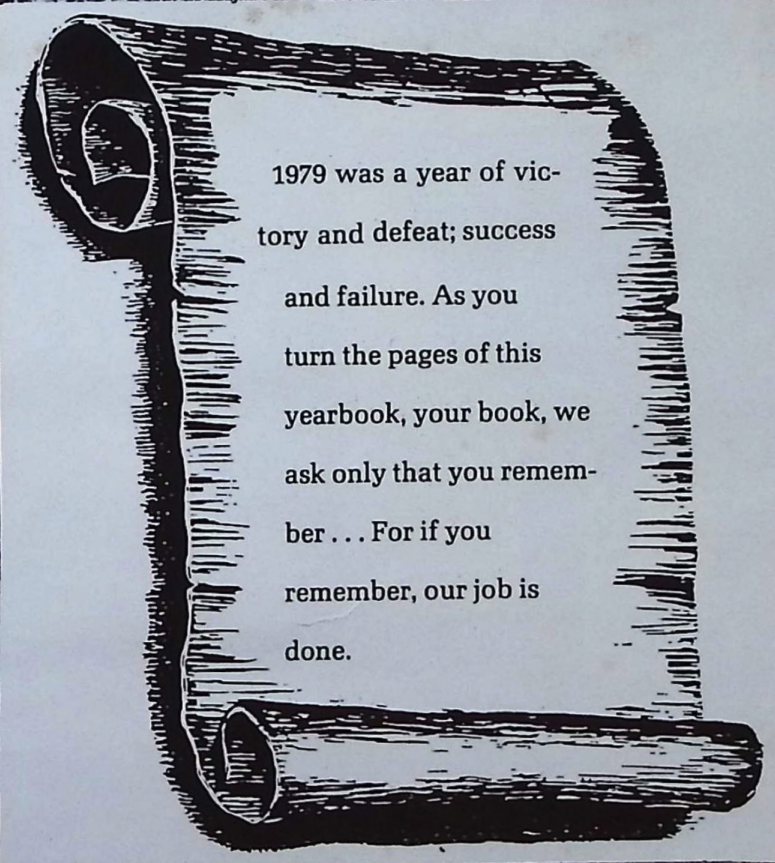 1979 was a year of vic-
tory and defeat; success
and failure. As you
turn the pages of this
yearbook, your book, we
ask only that you remem-
ber . . . For if you
remember, our job is
done.